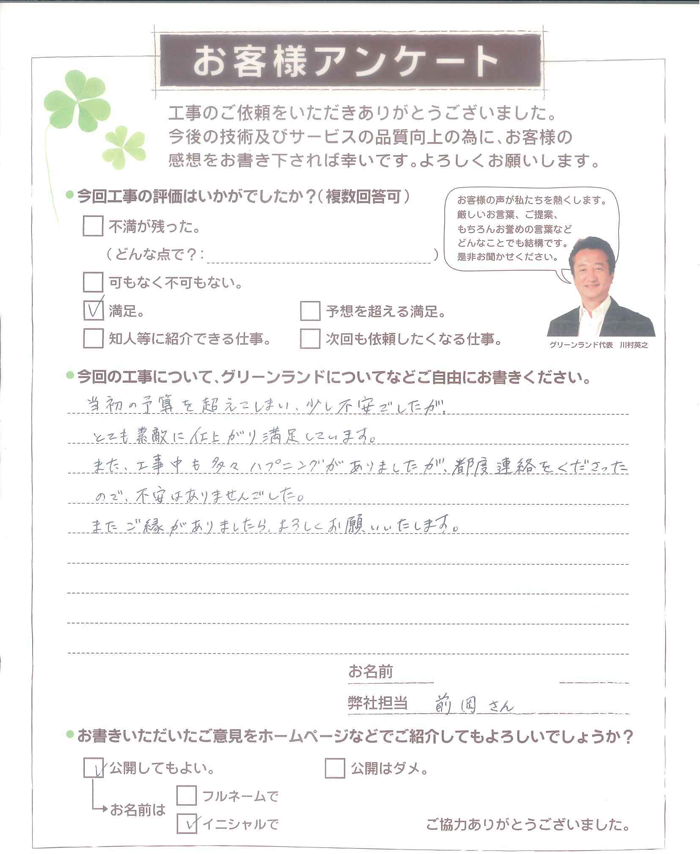 お客様アンケート
工事のご依頼をいただきありがとうございました。
今後の技術及びサービスの品質向上の為に、お客様の
感想をお書き下されば幸いです。よろしくお願いします。
今回工事の評価はいかがでしたか？（複数回答可）
不満が残った。
（どんな点で？：　）
可もなく不可もない。
満足。
予想を超える満足。
知人等に紹介できる仕事。
次回も依頼したくなる仕事。
お客様の声が私たちを熱くします。
厳しいお言葉、ご提案、
もちろんお誉めの言葉など
どんなことでも結構です。
是非お聞かせください。
グリーンランド代表　川村英之
今回の工事について、グリーンランドについてなどご自由にお書きください。
当初の予算を超えてしまい、少し不安でしたが、
とても素敵に仕上がり満足しています。
また、工事中も多々ハプニングがありましたが、都度連絡をくださった
ので、不安はありませんでした。
またご縁がありましたら、よろしくお願いいたします。
お名前
弊社担当　前岡さん
お書きいただいたご意見をホームページなどでご紹介してもよろしいでしょうか？
公開してもよい。
公開はダメ。
お名前は
フルネームで
イニシャルで
ご協力ありがとうございました。